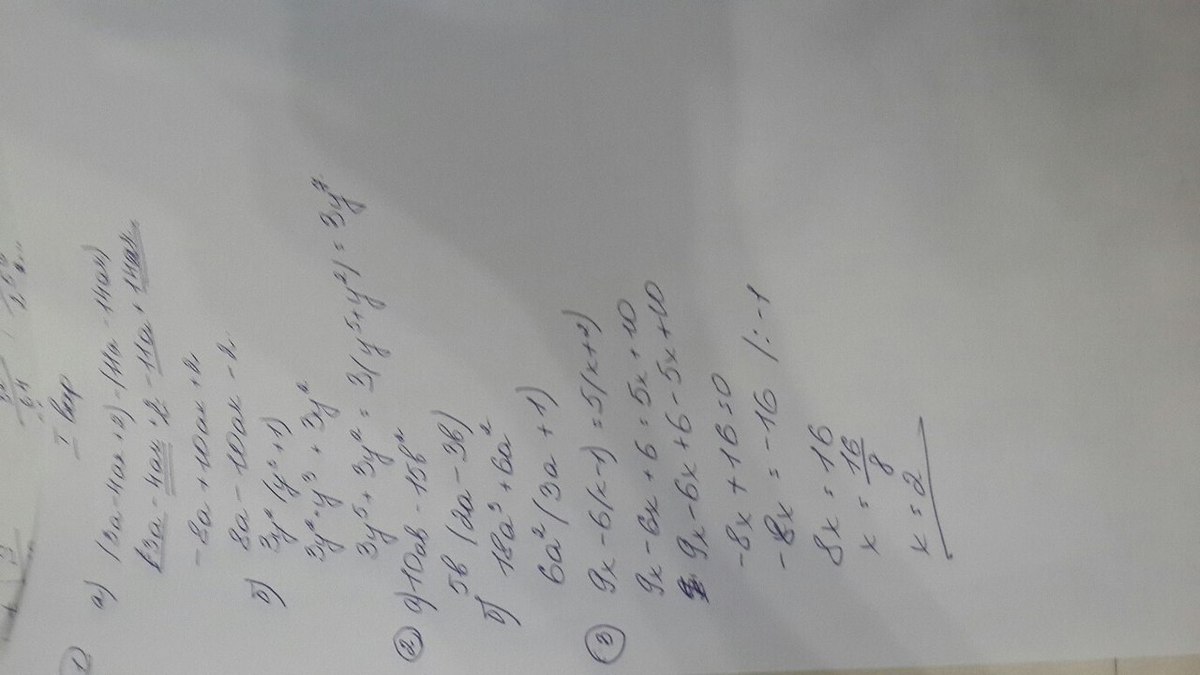 I вар
1) а) (3a-4ax+2)-(11a-14ax)
3a-4ax+2-11a+14ax
-8a+10ax+2
8a-10ax-2
б) 3y²(y³+1)
3y²·y³+3y²
3y⁵+3y²=3(y⁵+y²)=3y⁷
2) а) 10ab-15b²
5b(2a-3b)
б) 18a³+6a²
6a²(3a+1)
3) 9x-6(x-1)=5(x+2)
9x-6x+6=5x+10
9x-6x+6-5x+10
-8x+16=0
-8x=-16 /:-1
8x=16
x=16/8
x=2